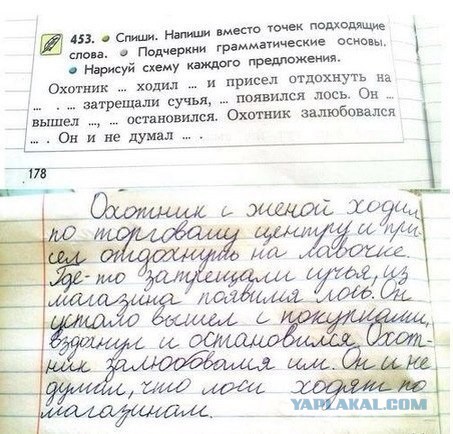 453. Спиши. Напиши вместо точек подходящие
слова. Подчеркни грамматические основы.
Нарисуй схему каждого предложения.
Охотник ... ходил ... и присел отдохнуть на
... . ... затрещали сучья, ... появился лось. Он ...
вышел ..., ... остановился. Охотник залюбовался
... . Он и не думал ... .
178
Охотник с женой ходил
по торговому центру и при-
сел отдохнуть на лавочке.
Где-то затрещали сучья, из
магазина появился лось. Он
устало вышел с покупками,
вздохнул и остановился. Охот-
ник залюбовался им. Он и не
думал, что лоси ходят по
магазинам.
YAPLAKAL.COM